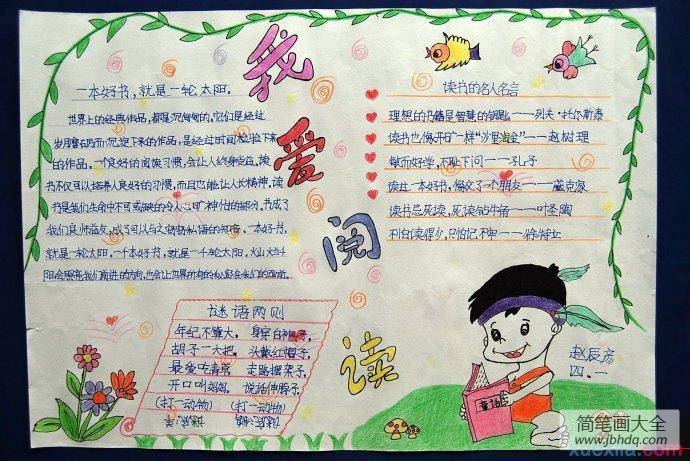 我爱阅读
一本好书，就是一轮太阳。
世界上的经典作品，都是沉甸甸的，它们是经过
岁月磨石而沉淀下来的作品，是经过时间检验下来
的作品。一个良好的阅读习惯，会让人终身受益。读
书不仅可以培养人良好的习惯，而且也能让人长精神。读
书是我们生命中不可或缺的令人心旷神怡的部分。书成了
我们良师益友，成了可以与之
一本好书，
就是一轮太阳。一千本好书，就是一千轮太阳。
阳会照亮我们前进的方向，也会让世界所有的
读书的名人名言
理想的书籍是智慧的钥匙——列夫·托尔斯泰
读书也像开矿一样"沙里淘金"——赵树理
敏而好学，不耻下问——孔子
读过一本好书，像交了个朋友——臧克家
读书忌死读，死读钻牛角——叶圣陶
不怕读得少，只怕记不牢——徐特立
谜语两则
年纪不算大，身穿白袍子，
胡子一大把。头戴红帽子，
最爱吃青草，走路摆架子，
开口叫妈妈。说话伸脖子。
(打一动物) (打一动物)
童话
赵辰彦
四.一
简笔画大全
www.jbhdq.com
xuexila.com